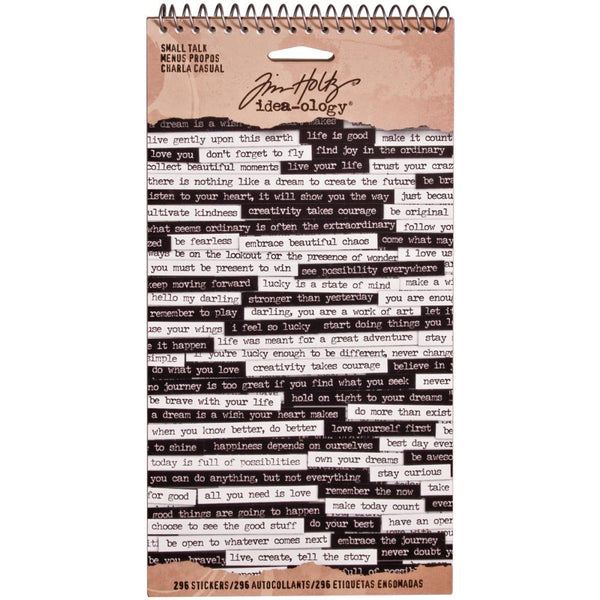 SMALL TALK
MENUS PROPOS
CHARLA CASUAL
Tim Holtz
idea-ology®
a dream is a wish makes
live gently upon this earth life is good make it count
love you don't forget to fly find joy in the ordinary
collect beautiful moments live your life trust your craz
there is nothing like a dream to create the future be bra
listen to your heart, it will show you the way just becau
ultivate kindness creativity takes courage be original
what seems ordinary is often the extraordinary follow you
zed be fearless embrace beautiful chaos come what may
ways be on the lookout for the presence of wonder i love us
you must be present to win see possibility everywhere
keep moving forward lucky is a state of mind make a wi
hello my darling stronger than yesterday you are enoug
remember to play darling, you are a work of art let
use your wings i feel so lucky start doing things you l
e it happen life was meant for a great adventure stay
simple is you're lucky enough to be different, never change
do what you love creativity takes courage believe in
no journey is too great if you find what you seek never
be brave with your life hold on tight to your dreams
a dream is a wish your heart makes do more than exist
when you know better, do better love yourself first b
to shine happiness depends on ourselves best day ever
today is full of possiblities own your dreams be aweso
you can do anything, but not everything stay curious
for good all you need is love remember the now take
good things are going to happen make today count ever
choose to see the good stuff do your best have an open
be open to whatever comes next embrace the journey
be you, bravely live, create, tell the story never doubt
full of possib
296 STICKERS/296 AUTOCOLLANTS/296 ETIQUETAS ENGOMADAS